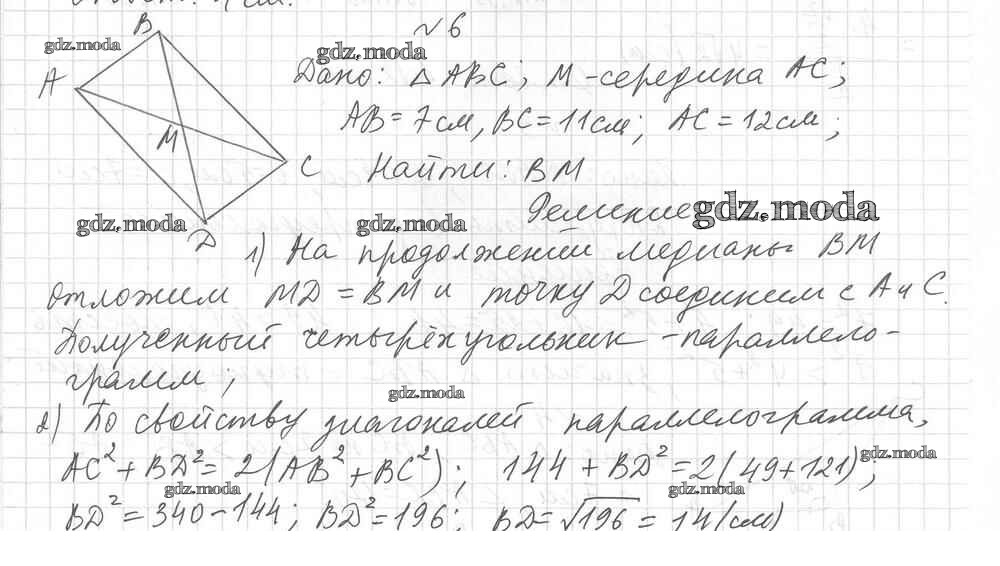 № 6
Дано: △ ABC; M - середина AC;
AB = 7 см, BC = 11 см; AC = 12 см;
Найти: BM
Решение
1) На продолжении медианы BM
отложим MD = BM и точку D соединим с A и C.
Полученный четырёхугольник - параллело-
грамм;
2) По свойству диагоналей параллелограмма,
AC² + BD² = 2(AB² + BC²); 144 + BD² = 2(49 + 121);
BD² = 340 - 144; BD² = 196; BD = √196 = 14 (см)
B
A
M
C
D
gdz.moda
gdz.moda
gdz.moda
gdz.moda
gdz.moda
gdz.moda
gdz.moda
gdz.moda
gdz.moda